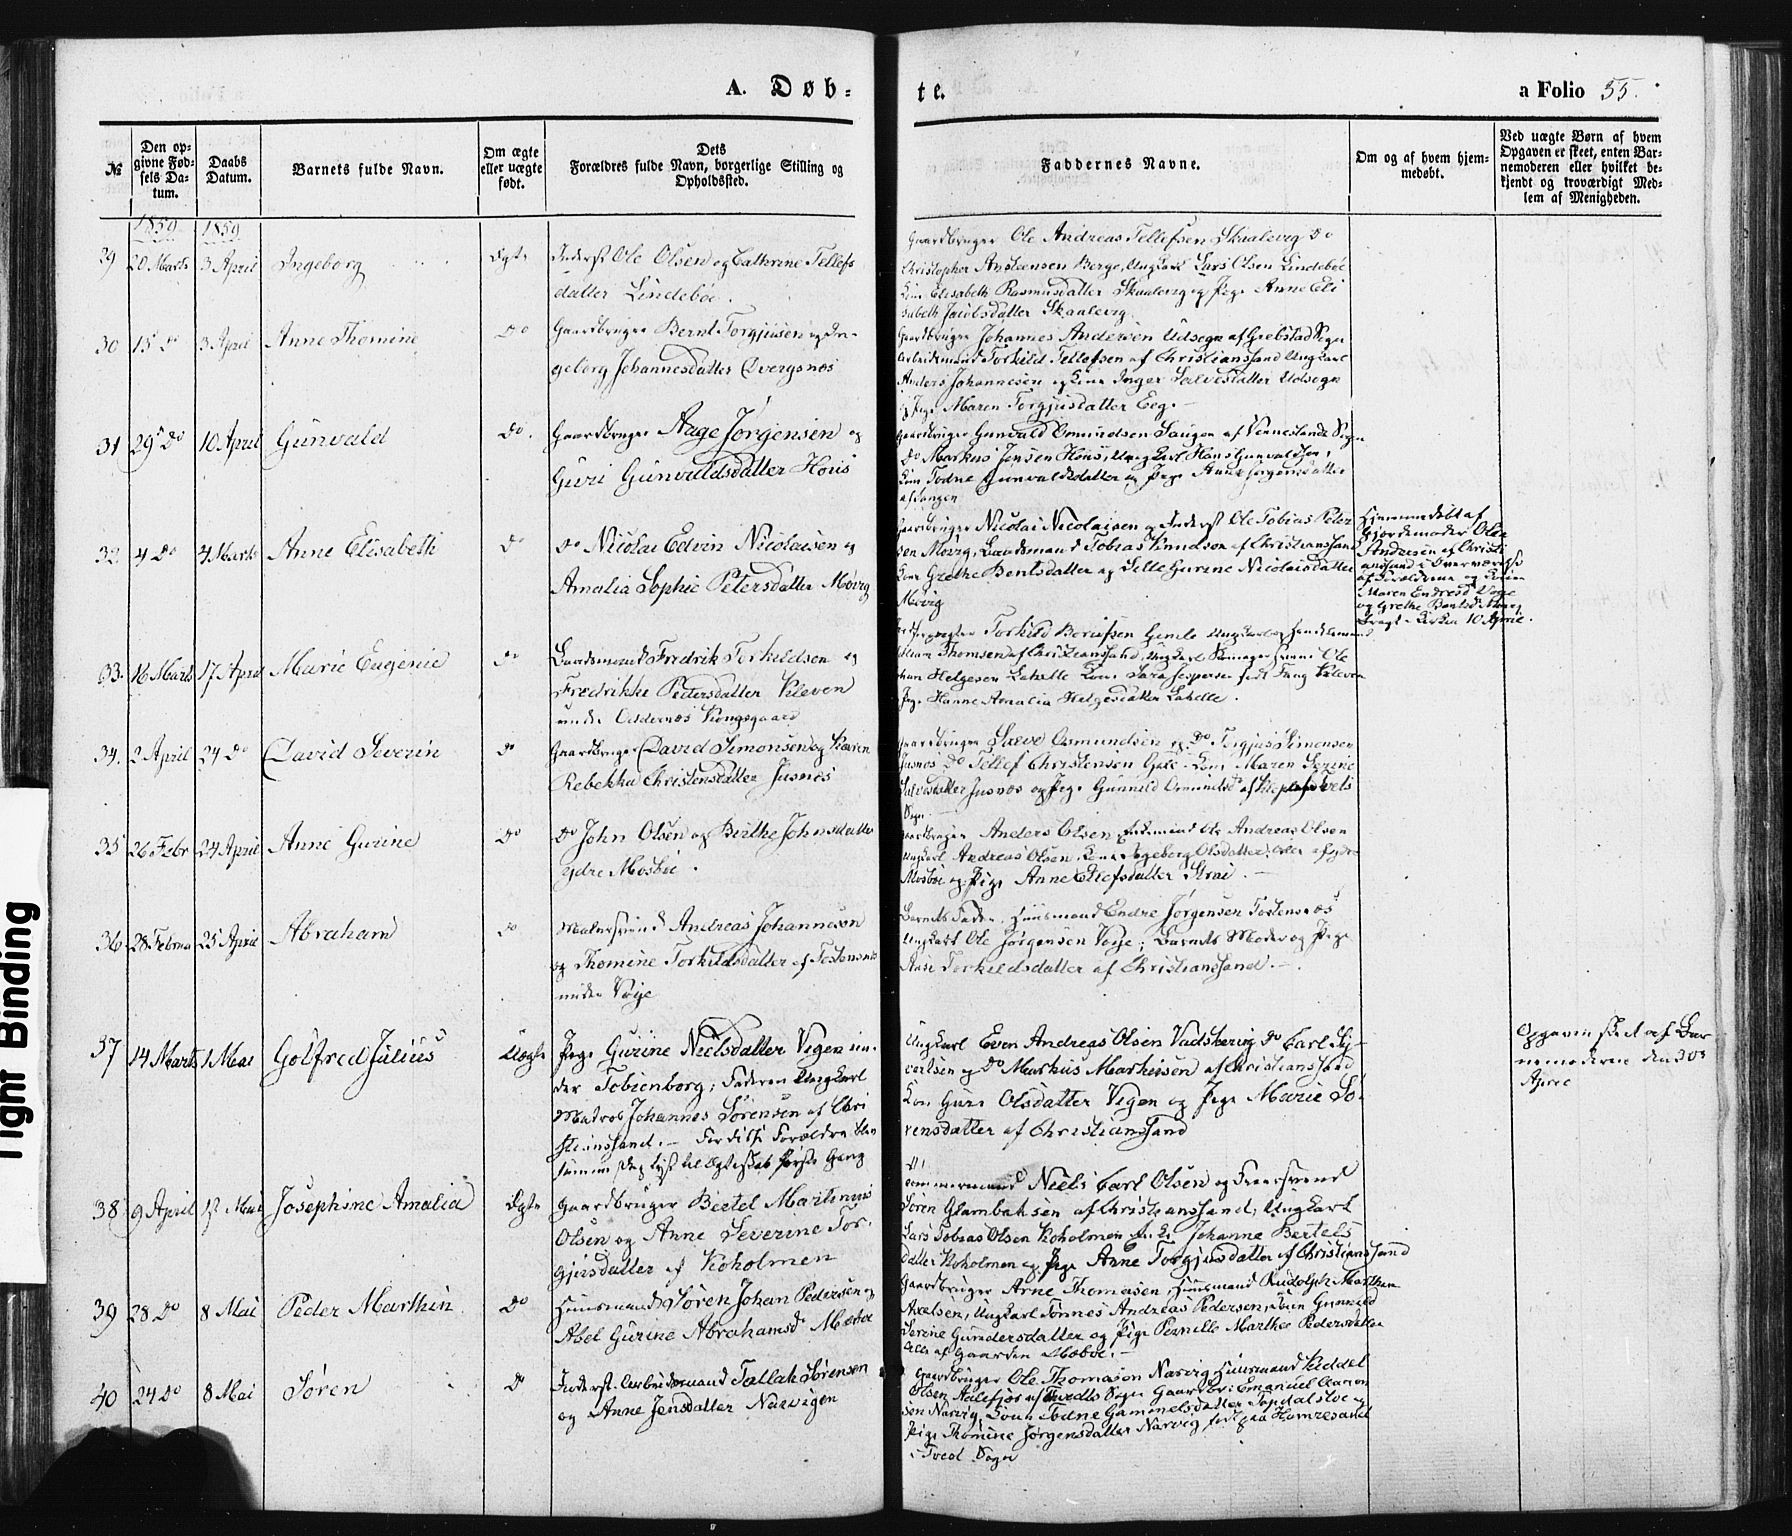 A. Døb-
te.
a Folio 55.
№
Den op-
givne Fød-
sels Da-
tum.
Daabs
Datum.
Barnets fulde Navn.
Om ægte
eller uægte
født.
Dets
Forældres fulde Navn, borgerlige Stilling og
Opholdssted.
Faddernes Navne.
Om og af hvem hjem-
medøbt.
Ved uægte Børn af hvem
Opgaven er skeet, enten Bar-
nemoderen eller hvilket be-
kjendt og troværdigt Med-
lem af Menigheden.
1859 1859
29 20 Marts 3 April Ingeborg Ægte
Inderst Ole Olsen og Cathrine Tellefs
datter Lindebøe.
Gaardbruger Ole Andreas Tellefsen Skaalevig Do
Christopher Anstensen Berge, Ungkarl Lars Olsen Lindebøe
Kone Elisabeth Rasmusdatter Skaalevig og Pige Anne Eli
sabeth Jacobsdatter Skaalevig
30 15 Do 3 April Anne Thomine Do
Gaardbruger Bernt Torgjusen og In-
geborg Johannesdatter Dvergsnes
Gaardbruger Johannes Andersen Udsogn af Grebstad Sogn
Arbeidsmand Torkild Tellefsen af Christianssand Ungkarl
Anders Johannesen og Kone Inger Salvesdatter Udsogn
og Pige Maren Torgjusdatter Eeg.
31 29 Do 10 April Gunvald Do.
Gaardbruger Aage Jørgensen og
Guri Gunvaldsdatter Hous
Gaardbruger Gunvald Omundsen Saugen af Venneslands Sogn
Do Markus Jensen Hous, Ungkarl Hans Gunvaldsen,
Kone Todne Gunvaldsdatter og Pige Anne Jørgensdatter
af Saugen
32 4 Do 4 Marts Anne Elisabeth Do
Do Nicolai Edvin Nicolaisen og
Amalia Sophie Petersdatter Møvig
Gaardbruger Nicolai Nicolaisen og Inderst Ole Tobias Peter
sen Møvig, Baadsmand Tobias Knudsen af Christianssand
Kone Grethe Bentsdatter og Pige Gurine Nicolaisdatter
Møvig
Hjemmedøbt af
Gjordemoder Olea
Andresen af Christi
anssand i Overværelse
af Forældrene og Konen
Maren Endresd Voie
og Grethe Bentsd Møvig
Bragt i Kirken 10 April.
33. 16 Marts 17 April Marie Eugenie Do
Baadsmand Fredrik Torkildsen og
Fredrikke Pedersdatter Kleven
under Oddernes Kongsgaard
Torkild Beruldsen Gimle Ungkarl og Handelsmand
Thomsen af Christianssand, Ungkarl Ole
Helgesen Lahelle Kone Sara Jespersen født Fang Kleven
Pige Hanne Amalia Helgesdatter Lahelle.
34. 2 April 24 Do David Severin Do
Gaardbruger David Simonsen og Karen
Rebekka Christensdatter Jusnes
Gaardbruger Salve Osmundsen og Do Torgjus Simonsen
Jusnes Do Tellef Christensen Gill Kone Maren Serine
Salvesdatter Jusnes og Pige Gunnild Omundsd
Sogn
35 26 Febr 24 April Anne Gurine Do
Do John Olsen og Birthe Johnsdatter
ydre Mosbøe.
Gaardbruger Anders Olsen, Enkemand Ole Andreas Olsen
Ungkarl Andreas Olsen, Kone Ingeborg Olsdatter, alle af ydre
Mosbøe og Pige Anne Ellefsdatter Strai.
36. 28 Februar 25 April Abraham Do
Malersvend Andreas Johannesen
og Thomine Torkildsdatter af Fostensnæs
under Voje
Barnets Fader, Huusmand Endre Jørgensen Fostensnæs
Ungkarl Ole Jørgensen Voje; Barnets Moder og Pige
Anne Torkildsdatter af Christianssand.
37 14 Marts 1 Mai Golfred Julius Uægte
Pige Gurine Neelsdatter Vigen un-
der Tobienborg; Faderen Ungkarl
Matros Johannes Sørensen af Chri
stianssand. - For disse Forældre
lyst til Ægteskab første Gang
Ungkarl Even Andreas Olsen Vadskerrig Do Carl Sy-
vertsen og Do Markus Markusen af Christianssand
Kone Guro Olsdatter Vigen og Pige Marie Sø-
rensdatter af Christianssand
Opgaven skeet af Bar
nemoderen den 30
April
38 9 April 1st Mai Josephine Amalia Ægte
Gaardbruger Bertel Martinus
Olsen og Anne Severine Tor-
gjusdatter af Koholmen
Tømmermand Niels Carl Olsen og
Søren Glambaksen af Christianssand, Ungkarl
Lars Tobias Olsen Koholmen Enke Johanne Bertels
datter Koholmen og Pige Anne Torgjusdatter af Christianssand
39 28 Do 8 Mai Peder Marthin Do
Huusmand Søren Johan Pedersen og
Abel Gurine Abrahamsd Mæbøe
Gaardbruger Arne Thomasen, Huusmand Rudolph Marthin
Axelsen, Ungkarl Tønnes Andreas Pedersen, Kone Gunnild
Serine Gundersdatter og Pige Pernille Marthe Pedersdatter
alle af Gaarden Mæbøe.
40 24 Do 8 Mai Søren Do
Inderst Arbeidsmand Tallak Sørensen
og Anne Jensdatter Narvigen
Gaardbruger Ole Thomason Narvig Huusmand Kiddel
Olsen Aalefjær af Tveidts Sogn Gaardbr: Emanuel Aanon
sen Narvig, Kone Todne Gammelsdatter Topdalsloe og
Pige Thomine Jørgensdatter Narvig født paa Hamresand
i Tveed Sogn
Tight Binding